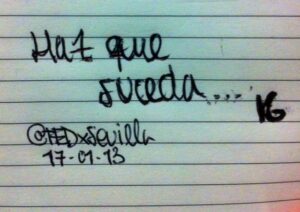 Haz que
suceda....
VG
@TEDxSevilla
17-01-13